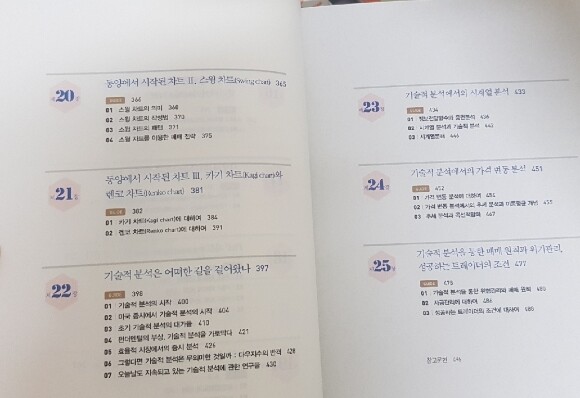 제20장
동양에서 시작된 차트 II, 스윙 차트(Swing chart) 365
366
01 스윙 차트의 의미 368
02 스윙 차트의 작성법 370
03 스윙 차트의 패턴 371
04 스윙 차트를 이용한 매매 전략 375
제21장
동양에서 시작된 차트 III, 카기 차트(Kagi chart)와
렌코 차트(Renko chart) 381
382
01 카기 차트(Kagi chart)에 대하여 384
02 렌코 차트(Renko chart)에 대하여 391
제22장
기술적 분석은 어떠한 길을 걸어왔나 397
398
01 기술적 분석의 시작 400
02 미국 증시에서 기술적 분석의 시작 404
03 초기 기술적 분석의 대가들 410
04 펀더멘털의 부상, 기술적 분석을 가로막다 421
05 효율적 시장에서의 증시 분석 426
06 그렇다면 기술적 분석은 무의미한 것일까 : 다우지수의 반격 428
07 오늘날도 지속되고 있는 기술적 분석에 관한 연구들 430
제23장
기술적 분석에서의 시계열 분석 433
434
436
02 시계열 분석과 기술적 분석
03
제24장
기술적 분석에서의 가격 변동 분석 451
452
01 가격 변동 분석에 대하여 454
02 가격 변동 분석에서의 추세 분석과
03 추세 분석과
제25장
기술적 분석을 통한 매매 원칙과 위기관리,
성공하는 트레이더의 조건 477
478
01 기술적 분석을 통한 위험관리와 매매 원칙
02 자금관리에 대하여 485
03 성공하는 트레이더의 조건에 대하여
참고문헌